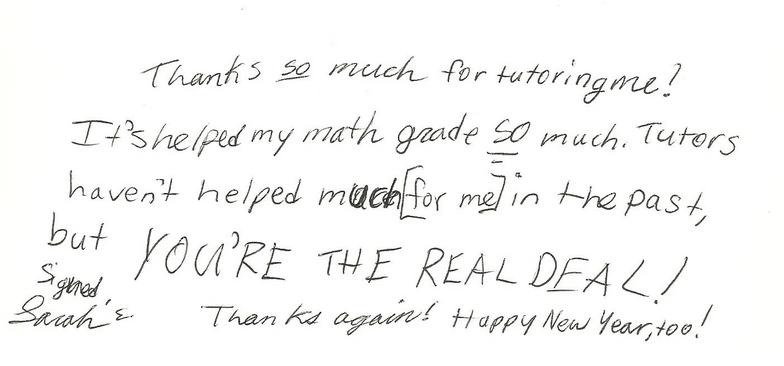 Thanks so much for tutoring me!
It's helped my math grade so much. Tutors
haven't helped much [for me] in the past,
but YOU'RE THE REAL DEAL!
Signed
Sarah Thanks again! Happy New Year, too!